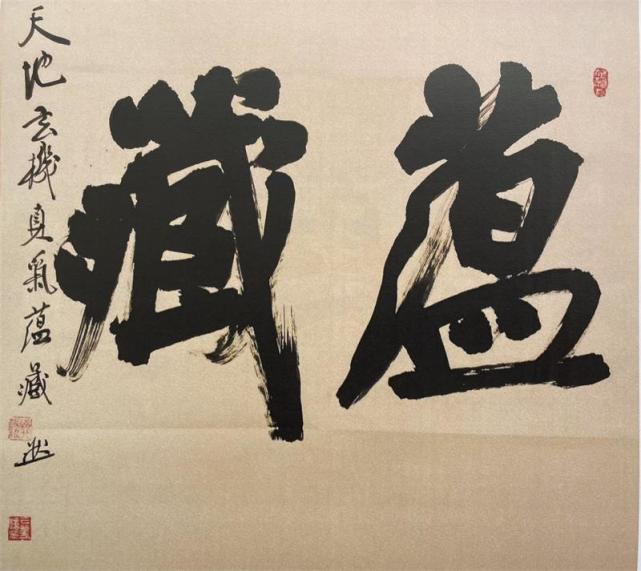 蕴藏
天地玄機真氣蕴藏